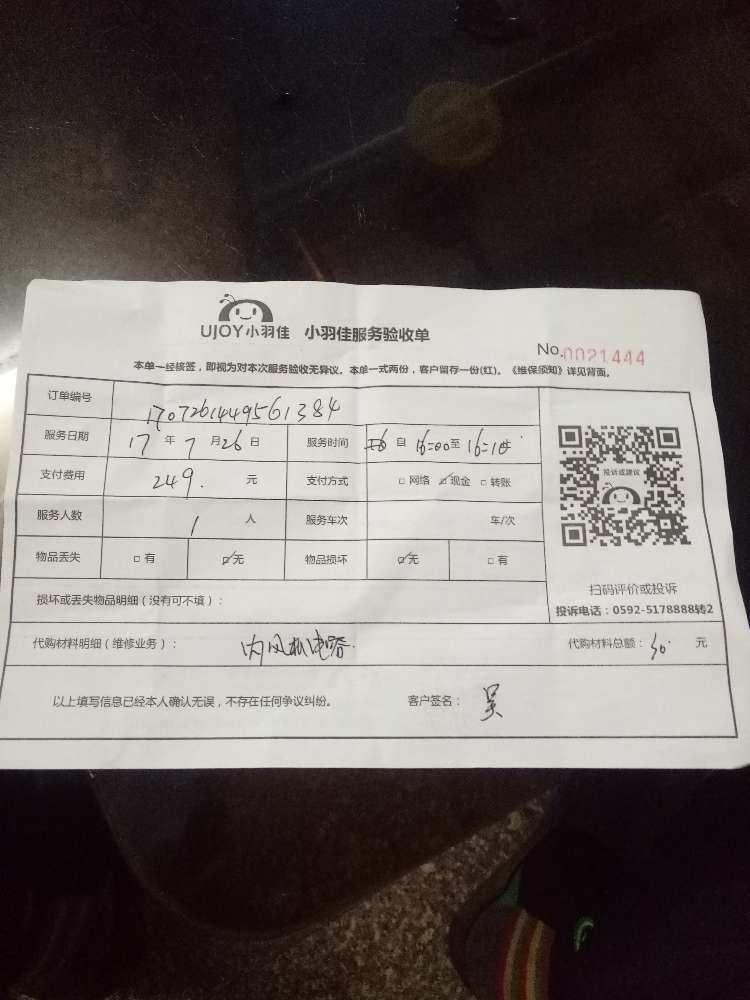 UJOY小羽佳 小羽佳服务验收单
No.0021444
本单一经核签，即视为对本次服务验收无异议。本单一式两份，客户留存一份(红)。《维保须知》详见背面。
订单编号 1707261449561384
服务日期 17年7月26日 服务时间 自 16:00至 16:10
支付费用 249.元 支付方式 □网络 ☑现金 □转账
投诉或建议
服务人数 1人 服务车次 车/次
物品丢失 □有 ☑无 物品损坏 ☑无 □有
扫码评价或投诉
损坏或丢失物品明细（没有可不填）：
投诉电话：0592-5178888转2
代购材料明细（维修业务）： 内风机电容. 代购材料总额：30.元
以上填写信息已经本人确认无误，不存在任何争议纠纷。 客户签名： 吴